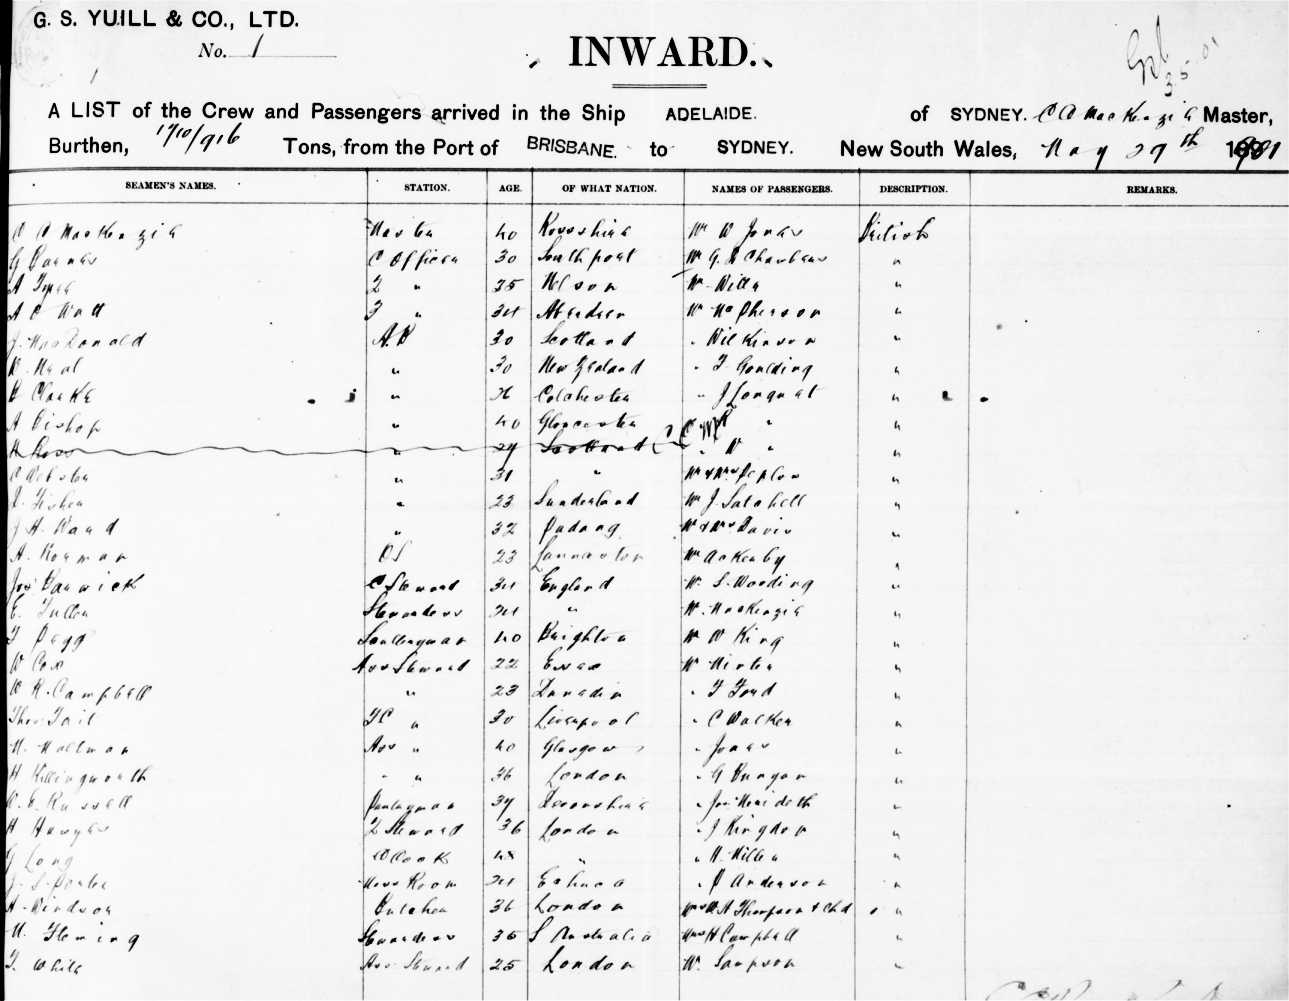 G. S. YUILL & CO., LTD.
No. 1
INWARD.
A LIST of the Crew and Passengers arrived in the Ship ADELAIDE. of SYDNEY. C A MacKenzie Master,
Burthen, 1710/916 Tons, from the Port of BRISBANE. to SYDNEY. New South Wales, May 29th 1901
SEAMEN'S NAMES. STATION. AGE. OF WHAT NATION. NAMES OF PASSENGERS. DESCRIPTION. REMARKS.
MacKenzie Master 40 Rossshire Mr W Jonas British
G C Officer 30 Southport Mr G "
A 2 " 35 Nelson Mr Witte "
A C Watt 3 " 34 Aberdeen Mr McPherson "
J. MacDonald A.B 30 Scotland " Wilkinson "
" 30 New Zealand " T Goulding "
H Clarke " 26 Colchester " J "
A Bishop " 40 Gloucester "
H Ross " 29 Scotland " W " "
Webster " 31 " Mr & Mrs "
Fisher " 23 Sunderland Mr J. Satchell "
J. H. Ward " 32 Padang Mr & Mrs Davis "
A. OS 23 Launceston Mr "
Jos Barwick C Steward 34 England Mr S. Wooding "
E. Stewardess 34 " Mr. MacKenzie "
T Pegg Sculleryman 40 Brighton Mr W King "
W Cox Ass Steward 22 Essex Mr "
W R. Campbell " 23 Dunedin " T Ford "
Thos Tait " 30 Liverpool " C Walker "
Ass " 40 Glasgow " Jonas "
H Killingworth " " 36 London " G "
E. Russell Pantryman 39 Devonshire " Jos Merideth "
H 2 Steward 36 London " J Kingdon "
G Long Cook 48 " " M. Miller "
J. S. Porter Mess Room 34 " P Anderson "
A. Windsor Butcher 36 London Mrs Thompson & Chd "
M. Fleming Stewardess 35 S Australia Mrs H Campbell "
T. White Ass Steward 25 London Mr. Sampson "